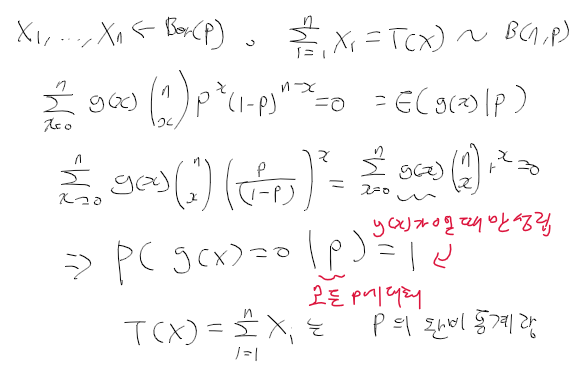 X₁, ..., Xₙ ← Ber(p) , ∑ᵢ₌₁ⁿ Xᵢ = T(X) ~ B(n,p)
∑ₓ₌₀ⁿ g(x) (n x) pˣ (1-p)ⁿ⁻ˣ = 0 = E(g(x)|p)
∑ₓ₌₀ⁿ g(x) (n x) (p/(1-p))ˣ = ∑ₓ₌₀ⁿ g(x) (n x) rˣ = 0
g(x)가 0일 때만 성립
⇒ P( g(x)=0 | p ) = 1
모든 p에 대해
T(X) = ∑ᵢ₌₁ⁿ Xᵢ 는 p의 완비통계량